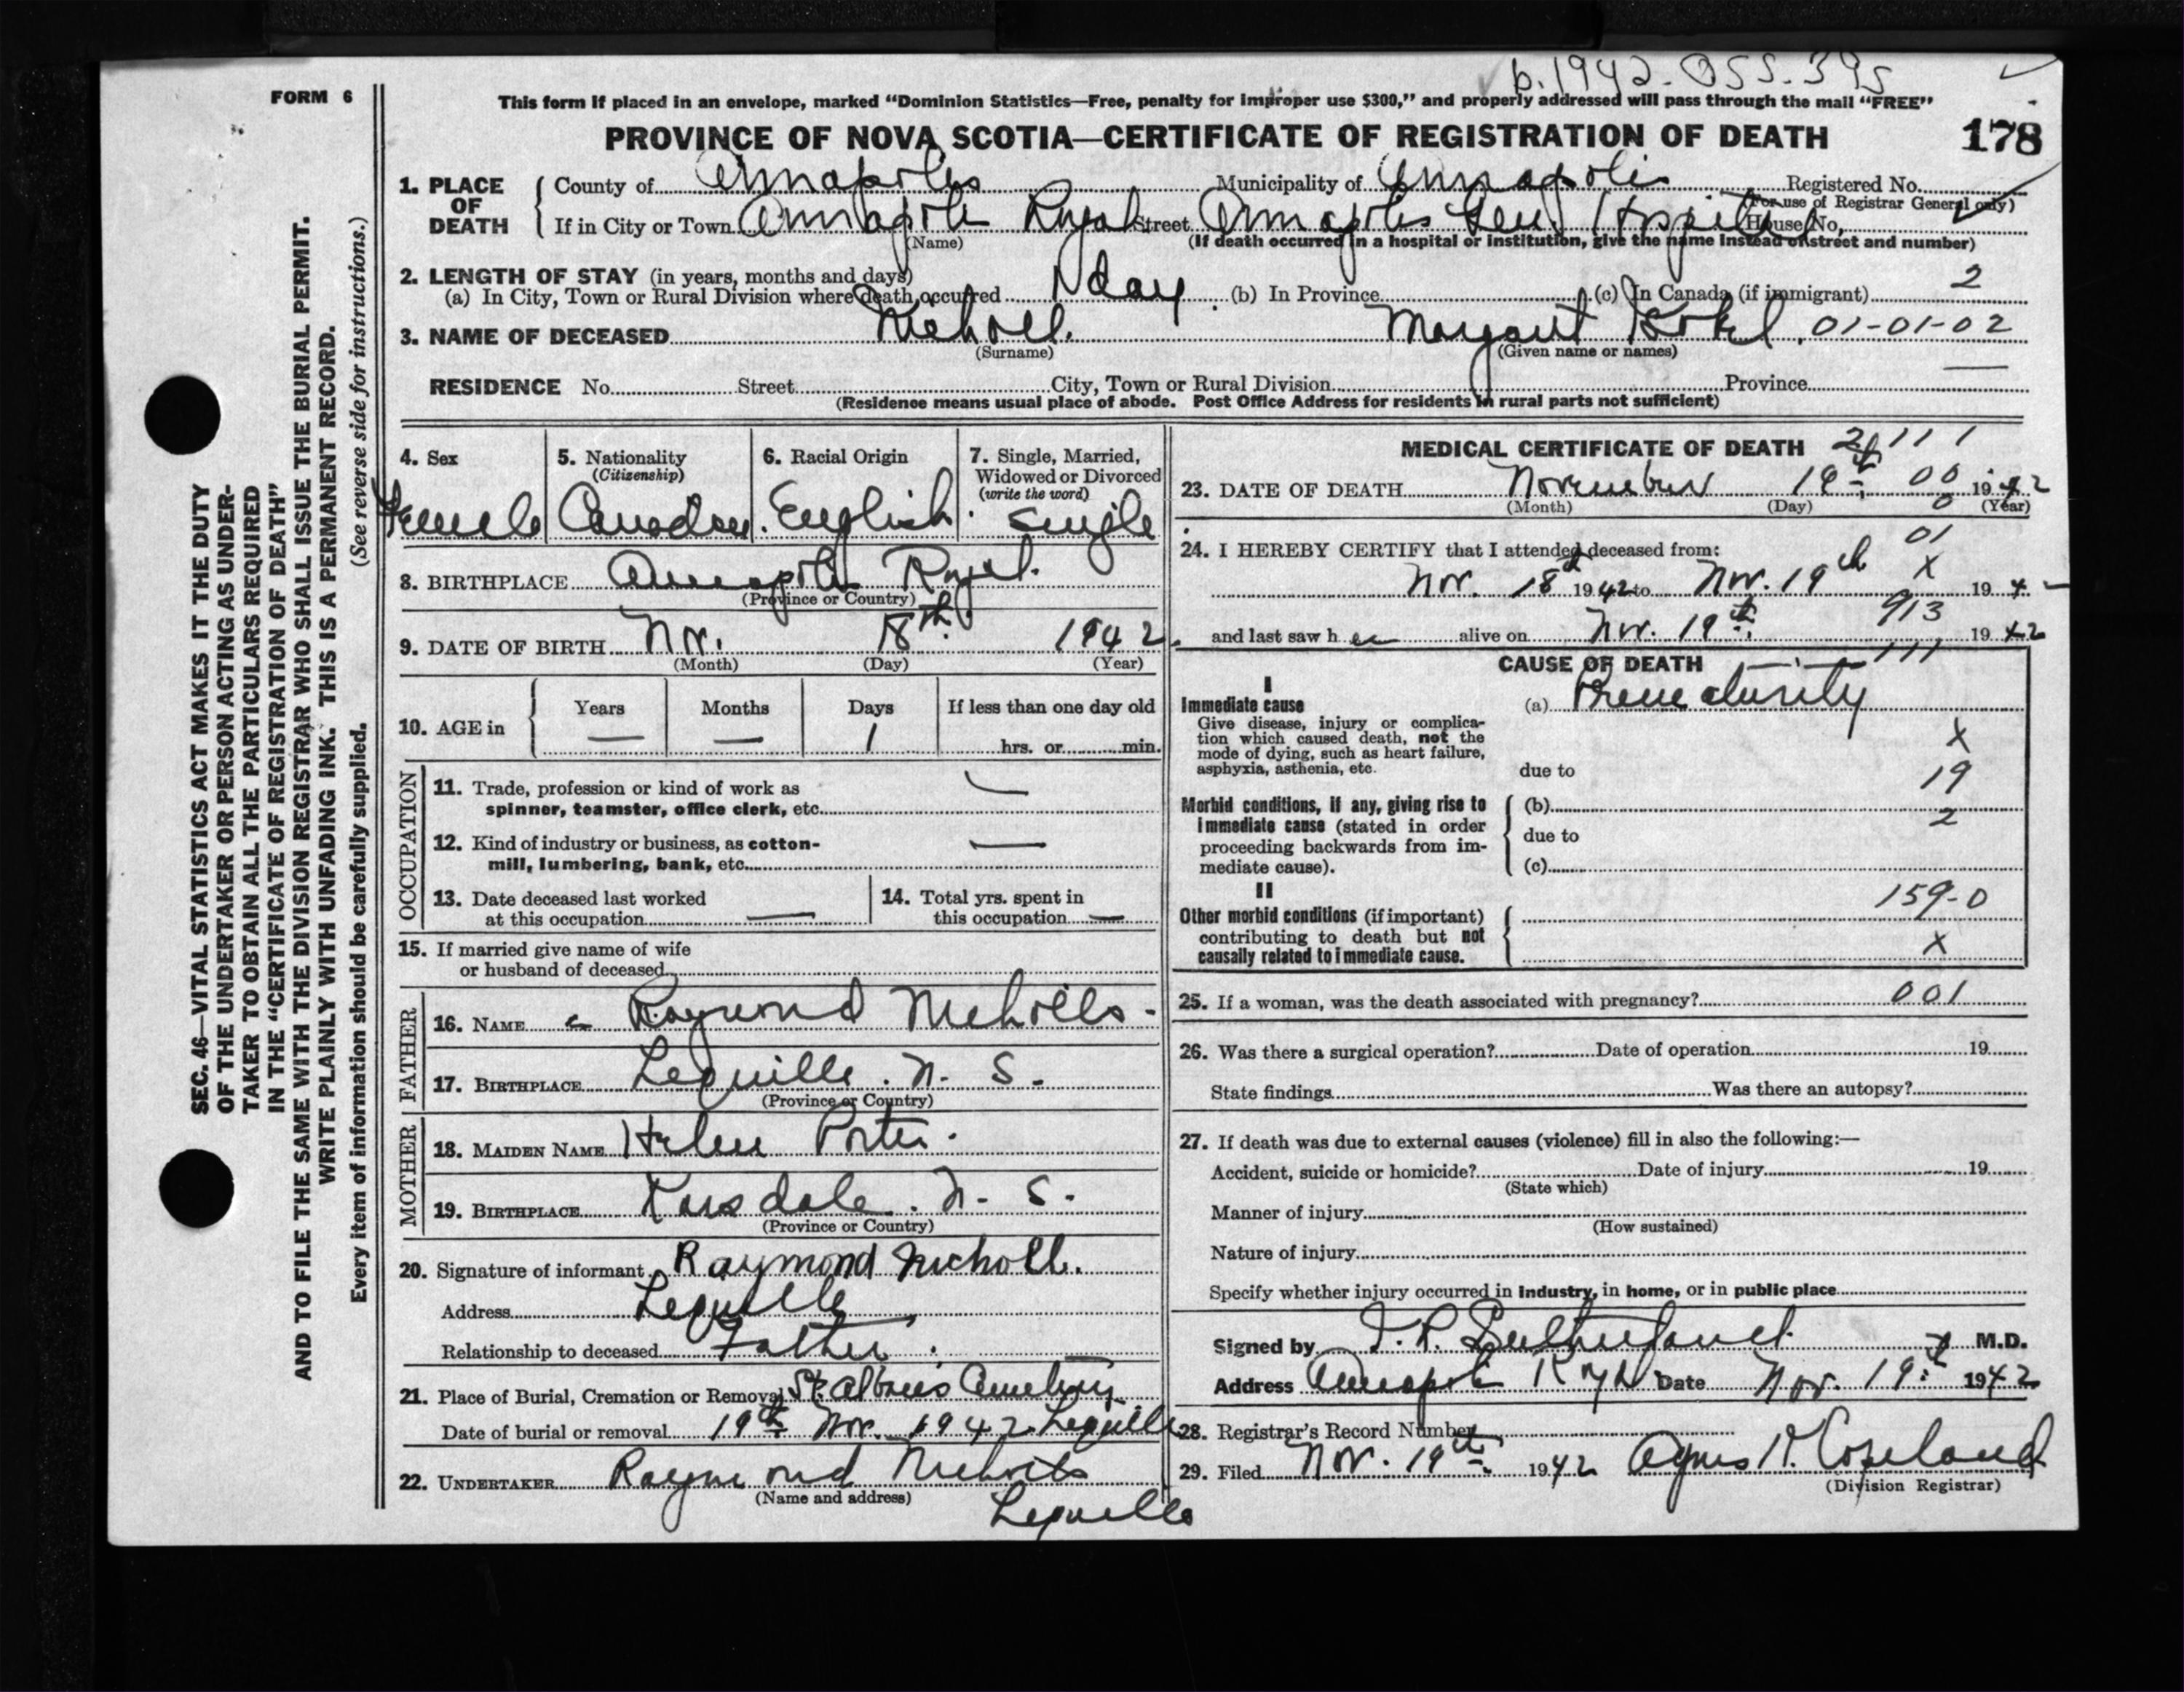 b. 1942-055-395
FORM 6
This form if placed in an envelope, marked "Dominion Statistics—Free, penalty for improper use $300," and properly addressed will pass through the mail "FREE"
PROVINCE OF NOVA SCOTIA—CERTIFICATE OF REGISTRATION OF DEATH 178
1. PLACE OF DEATH
County of Annapolis Municipality of Annapolis Registered No.
(For use of Registrar General only)
If in City or Town Annapolis Royal Street Annapolis Gen. Hospital House No.
(Name) (If death occurred in a hospital or institution, give the name instead of street and number)
2. LENGTH OF STAY (in years, months and days)
(a) In City, Town or Rural Division where death occurred 1 day. (b) In Province (c) In Canada (if immigrant) 2
3. NAME OF DECEASED Nicholl. Margaret Isobel. 01-01-02
(Surname) (Given name or names)
RESIDENCE No. Street City, Town or Rural Division Province
(Residence means usual place of abode. Post Office Address for residents in rural parts not sufficient)
4. Sex Female
5. Nationality (Citizenship) Canadian.
6. Racial Origin English.
7. Single, Married, Widowed or Divorced (write the word) Single
8. BIRTHPLACE Annapolis Royal.
(Province or Country)
9. DATE OF BIRTH Nov. 18th 1942.
(Month) (Day) (Year)
10. AGE in Years — Months — Days 1 If less than one day old
hrs. or min.
OCCUPATION
11. Trade, profession or kind of work as —
spinner, teamster, office clerk, etc.
12. Kind of industry or business, as cotton- —
mill, lumbering, bank, etc.
13. Date deceased last worked
at this occupation —
14. Total yrs. spent in
this occupation —
15. If married give name of wife
or husband of deceased
FATHER
16. NAME Raymond Nicholls -
17. BIRTHPLACE Lequille. N. S.
(Province or Country)
MOTHER
18. MAIDEN NAME Helen Porter.
19. BIRTHPLACE Karsdale. N. S.
(Province or Country)
20. Signature of informant Raymond Nicholl.
Address Lequille
Relationship to deceased Father.
21. Place of Burial, Cremation or Removal St. Albans Cemetery
Date of burial or removal 19th Nov. 1942 Lequille
22. UNDERTAKER Raymond Nicholls
(Name and address)
Lequille
MEDICAL CERTIFICATE OF DEATH 2 111
23. DATE OF DEATH November 19th 00 1942
(Month) (Day) 0 (Year)
24. I HEREBY CERTIFY that I attended deceased from: 01
Nov. 18th 1942 to Nov. 19th X 194
913
and last saw her alive on Nov. 19th. 1942
CAUSE OF DEATH 111
I
Immediate cause (a) Prematurity
Give disease, injury or complica-
tion which caused death, not the X
mode of dying, such as heart failure,
asphyxia, asthenia, etc. due to 19
Morbid conditions, if any, giving rise to (b)
immediate cause (stated in order 2
proceeding backwards from im- due to
mediate cause). (c)
II 159-0
Other morbid conditions (if important)
contributing to death but not
causally related to immediate cause. X
25. If a woman, was the death associated with pregnancy? 001
26. Was there a surgical operation? Date of operation 19
State findings Was there an autopsy?
27. If death was due to external causes (violence) fill in also the following:—
Accident, suicide or homicide? Date of injury 19
(State which)
Manner of injury
(How sustained)
Nature of injury
Specify whether injury occurred in industry, in home, or in public place
Signed by Sutherland. M.D.
Address Annapolis Royal Date Nov. 19th 1942
28. Registrar's Record Number
29. Filed Nov. 19th. 1942 Agnes H. Copeland
(Division Registrar)
SEC. 46—VITAL STATISTICS ACT MAKES IT THE DUTY
OF THE UNDERTAKER OR PERSON ACTING AS UNDER-
TAKER TO OBTAIN ALL THE PARTICULARS REQUIRED
IN THE "CERTIFICATE OF REGISTRATION OF DEATH"
AND TO FILE THE SAME WITH THE DIVISION REGISTRAR WHO SHALL ISSUE THE BURIAL PERMIT.
WRITE PLAINLY WITH UNFADING INK. THIS IS A PERMANENT RECORD.
Every item of information should be carefully supplied. (See reverse side for instructions.)